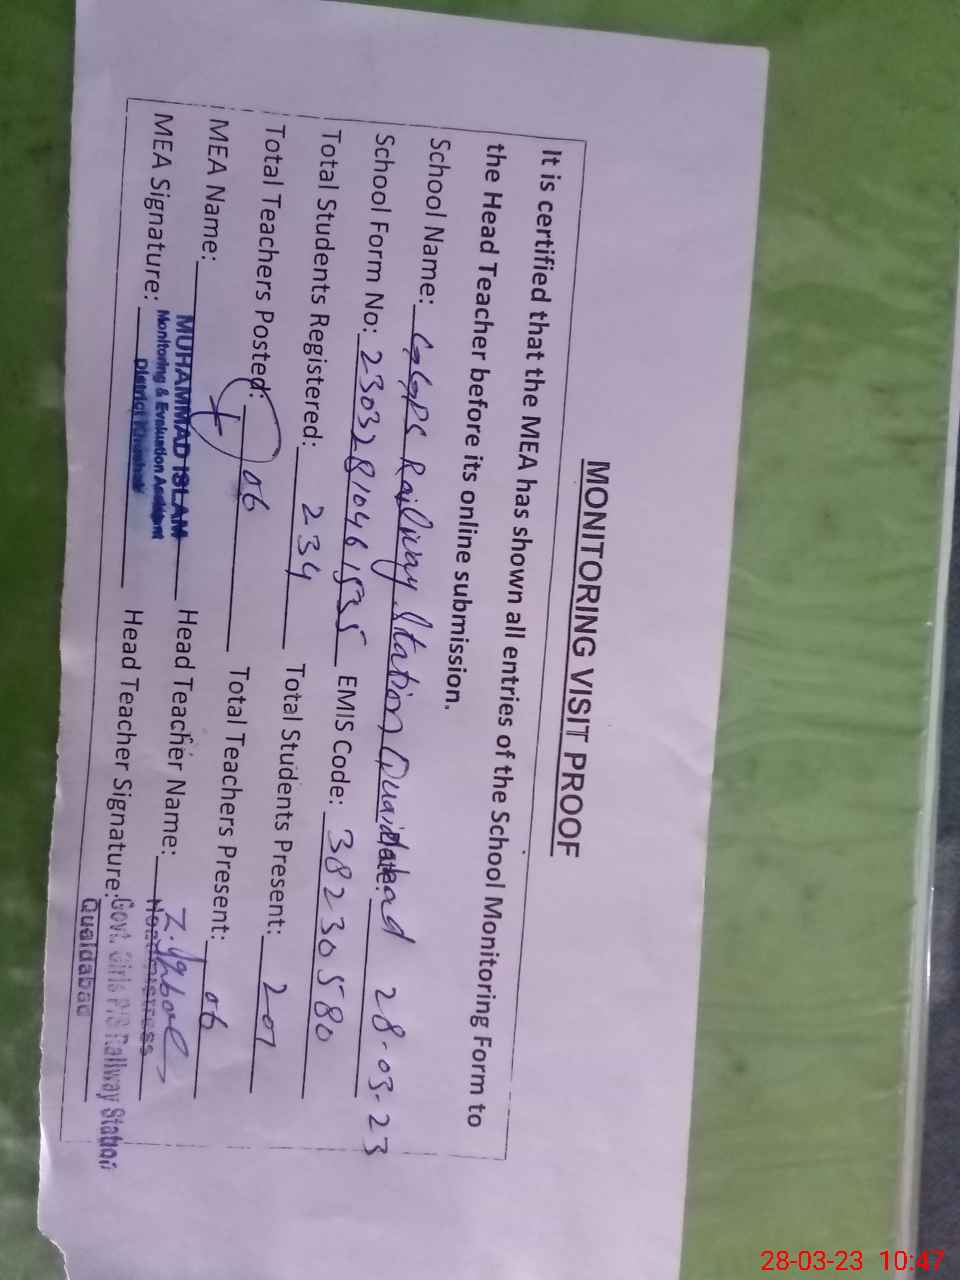 MONITORING VISIT PROOF
It is certified that the MEA has shown all entries of the School Monitoring Form to
the Head Teacher before its online submission.
School Name: GGPS Railway Station Quaidabad Date: 28-03-23
School Form No: 23032810461535 EMIS Code: 38230580
Total Students Registered: 234 Total Students Present: 201
Total Teachers Posted: 06 Total Teachers Present: 06
MEA Name: MUHAMMAD ISLAM Head Teacher Name:
Monitoring & Evaluation Assistant Headmistress
MEA Signature: District Khushab Head Teacher Signature: Govt. Girls P/S Railway Station
Quaidabad
28-03-23 10:47